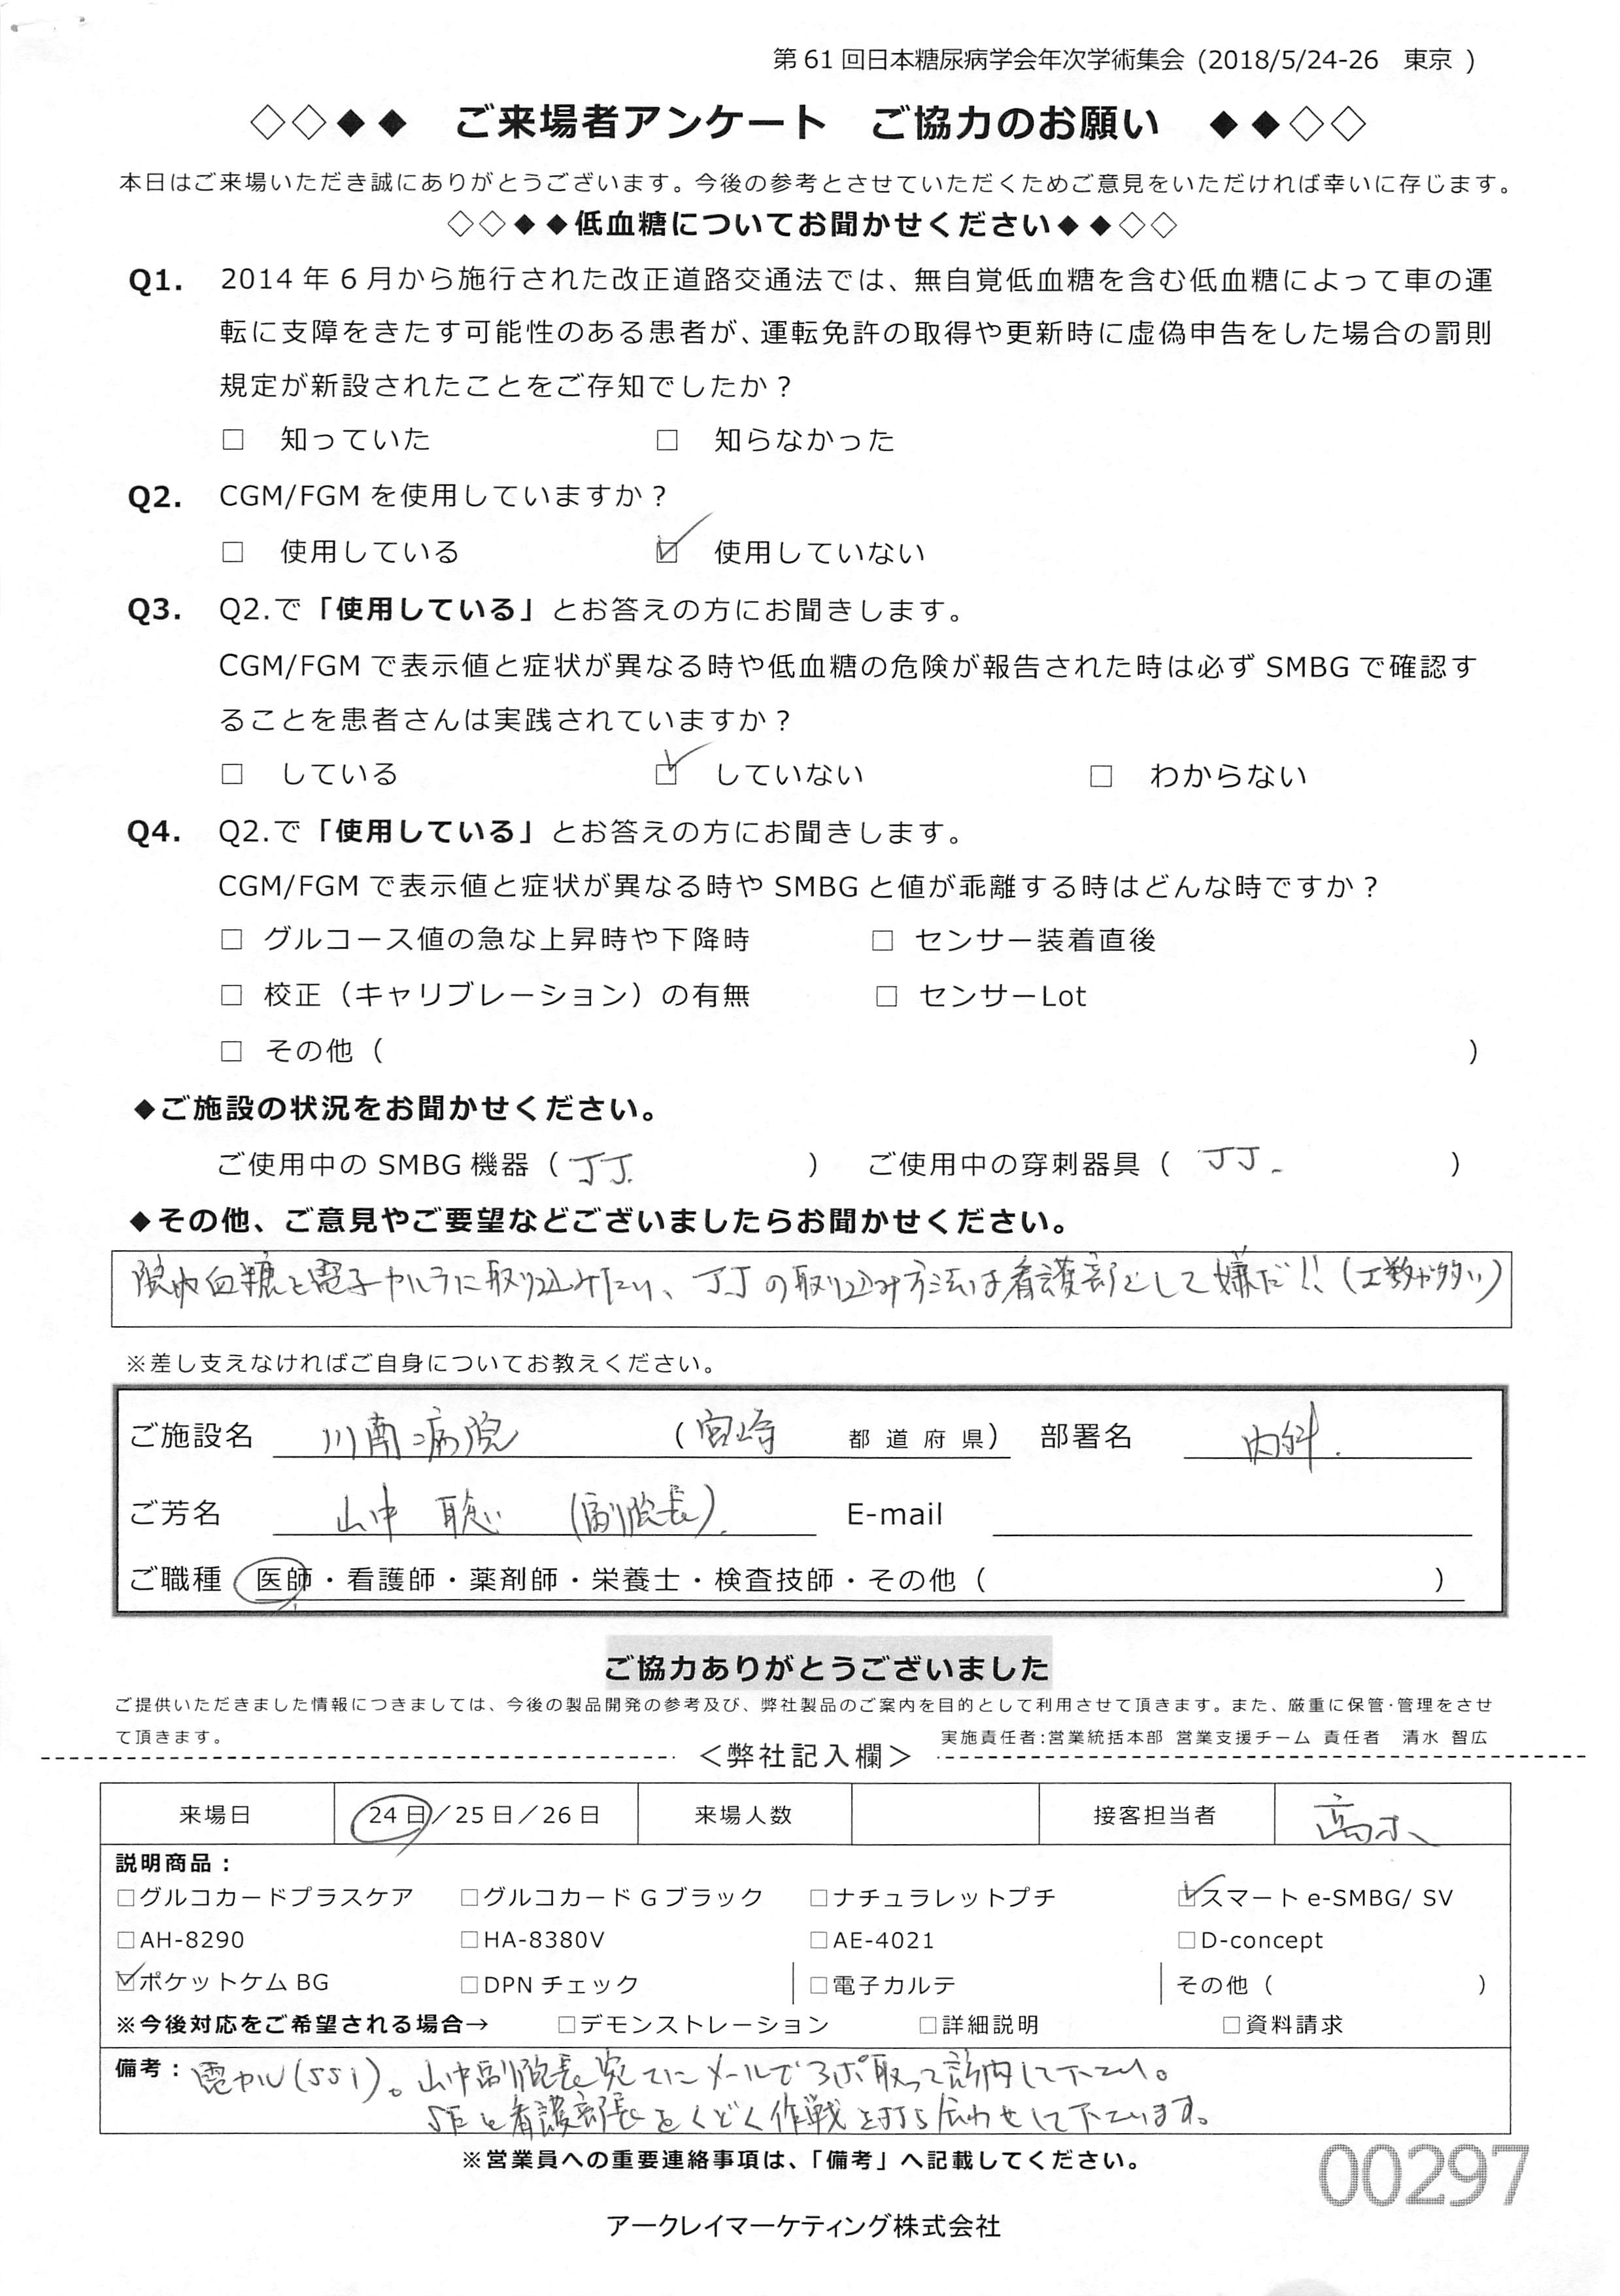 第61回日本糖尿病学会年次学術集会 (2018/5/24-26　東京 )
◇◇◆◆　ご来場者アンケート　ご協力のお願い　◆◆◇◇
本日はご来場いただき誠にありがとうございます。今後の参考とさせていただくためご意見をいただければ幸いに存じます。
◇◇◆◆低血糖についてお聞かせください◆◆◇◇
Q1.　2014年6月から施行された改正道路交通法では、無自覚低血糖を含む低血糖によって車の運
転に支障をきたす可能性のある患者が、運転免許の取得や更新時に虚偽申告をした場合の罰則
規定が新設されたことをご存知でしたか？
□　知っていた　　□　知らなかった
Q2.　CGM/FGMを使用していますか？
□　使用している　　☑　使用していない
Q3.　Q2.で「使用している」とお答えの方にお聞きします。
CGM/FGMで表示値と症状が異なる時や低血糖の危険が報告された時は必ずSMBGで確認す
ることを患者さんは実践されていますか？
□　している　　☑　していない　　□　わからない
Q4.　Q2.で「使用している」とお答えの方にお聞きします。
CGM/FGMで表示値と症状が異なる時やSMBGと値が乖離する時はどんな時ですか？
□ グルコース値の急な上昇時や下降時　　□ センサー装着直後
□ 校正（キャリブレーション）の有無　　□ センサーLot
□ その他（　　）
◆ご施設の状況をお聞かせください。
ご使用中のSMBG機器（ JJ. ）　ご使用中の穿刺器具（ JJ. ）
◆その他、ご意見やご要望などございましたらお聞かせください。
院内血糖を電子カルテに取り込みたい、JJの取り込み方法は看護部として嫌だ!!（工数が多い）
※差し支えなければご自身についてお教えください。
ご施設名　川南病院　（宮崎　都道府県）　部署名　内科.
ご芳名　山中 聡　（副院長）.　E-mail
ご職種　医師・看護師・薬剤師・栄養士・検査技師・その他（　　）
ご協力ありがとうございました
ご提供いただきました情報につきましては、今後の製品開発の参考及び、弊社製品のご案内を目的として利用させて頂きます。また、厳重に保管･管理をさせ
て頂きます。　実施責任者:営業統括本部 営業支援チーム 責任者　清水 智広
＜弊社記入欄＞
来場日　24日／25日／26日　来場人数　接客担当者　高木
説明商品：
□グルコカードプラスケア　□グルコカードGブラック　□ナチュラレットプチ　☑スマートe-SMBG/ SV
□AH-8290　□HA-8380V　□AE-4021　□D-concept
☑ポケットケムBG　□DPNチェック　□電子カルテ　その他（　　）
※今後対応をご希望される場合→　□デモンストレーション　□詳細説明　□資料請求
備考：電カル(SSI)。山中副院長宛てにメールでアポ取って訪問して下さい。
SEと看護部長をくどく作戦を打ち合わせして下さいます。
※営業員への重要連絡事項は、「備考」へ記載してください。
00297
アークレイマーケティング株式会社